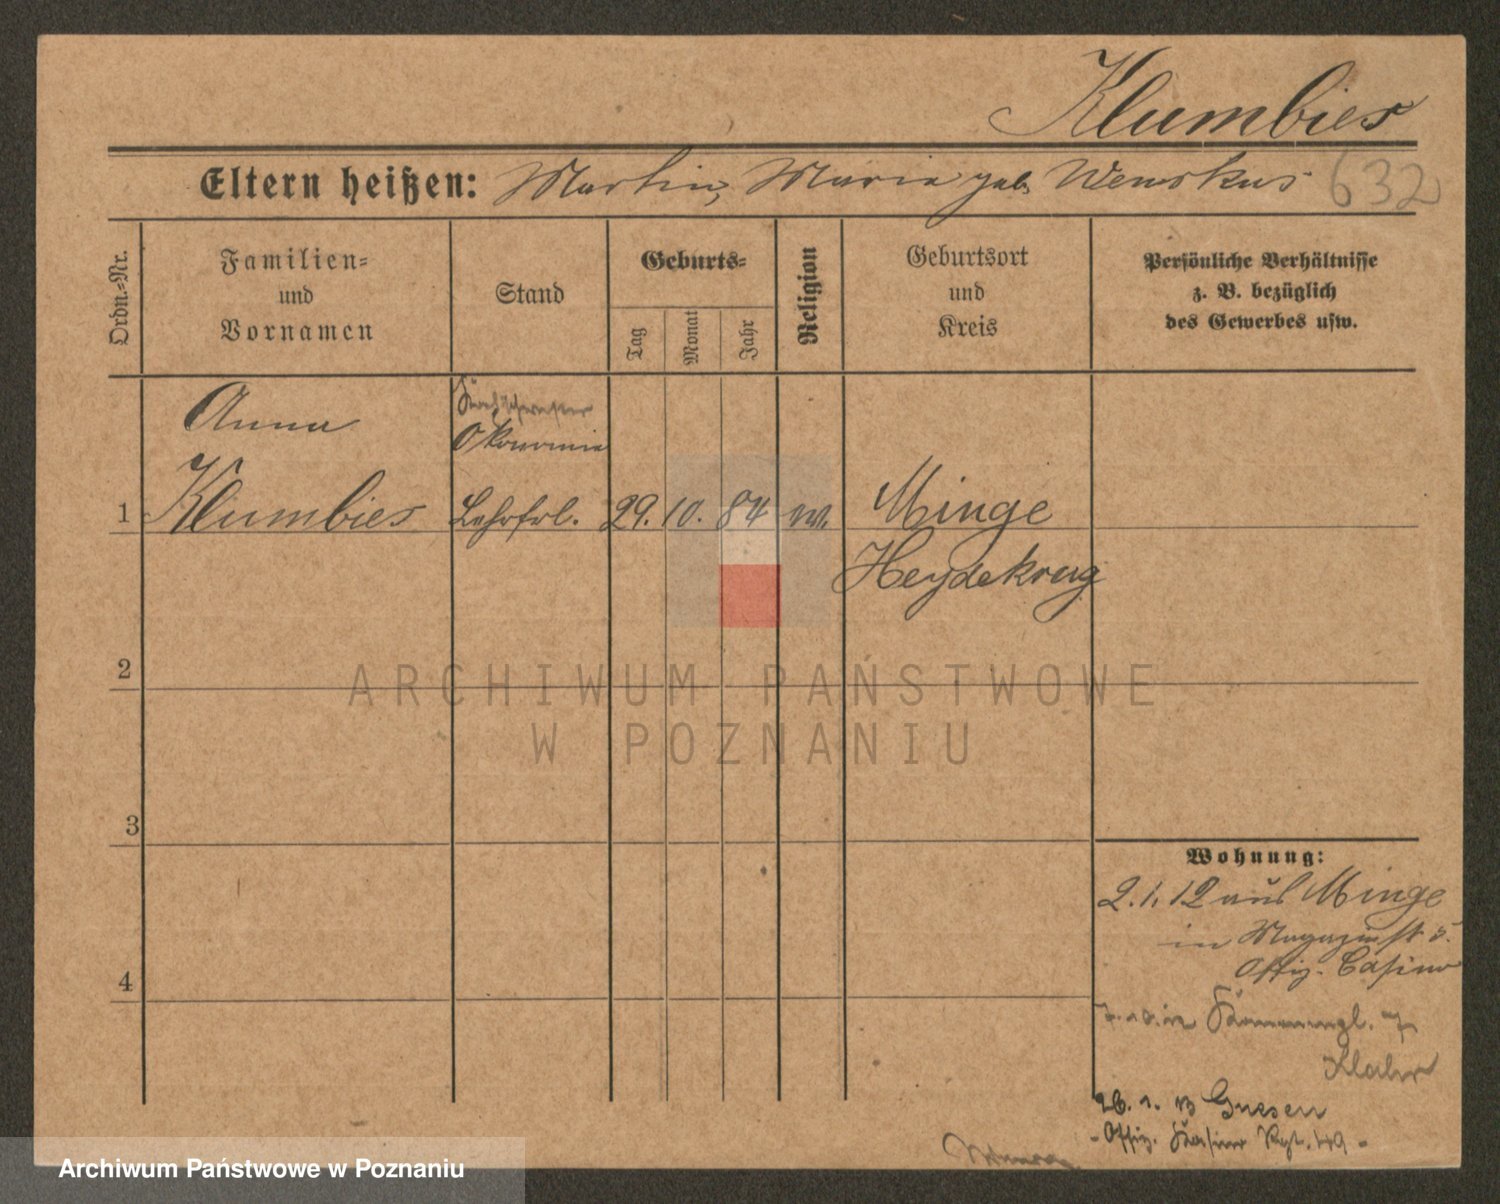 Klumbies
Eltern heißen: Martin, Maria geb. Wenskus 632
Ordn.=Nr.
Familien=
und
Vornamen
Stand
Geburts=
Tag
Monat
Jahr
Religion
Geburtsort
und
Kreis
Persönliche Verhältnisse
z. B. bezüglich
des Gewerbes usw.
Anna
Ökonomie
1 Klumbies Lehrfrl. 29. 10. 84 Minge
Heydekrug
2
3
4
Wohnung:
2.1.12 aus Minge
in Magazinst 5.
Offiz. Casino
7.10.12
Klahr
26. 1. 13 Gnesen
- Offiz. Kasino Rgt. 49 -
ARCHIWUM PAŃSTWOWE
W POZNANIU
Archiwum Państwowe w Poznaniu